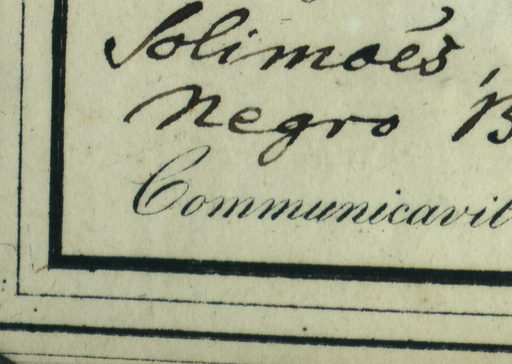 Solimoés,
Negro B
Communicavit